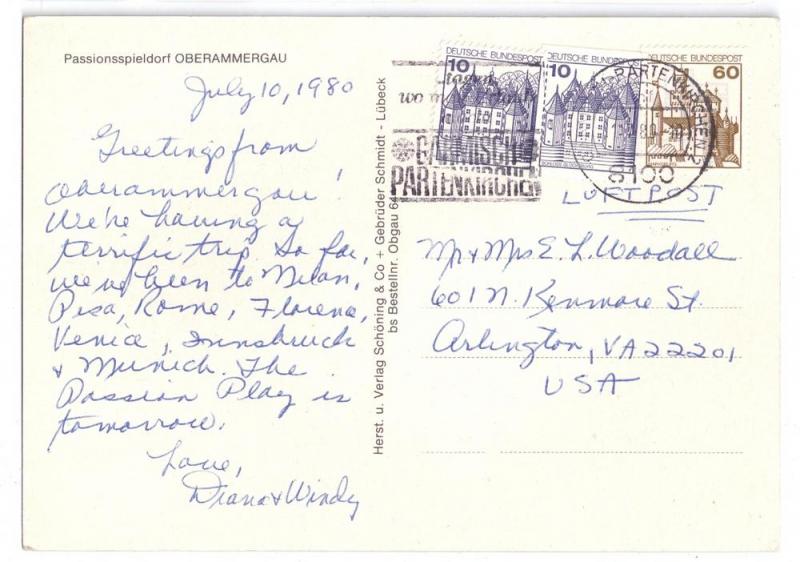 Passionsspieldorf OBERAMMERGAU
July 10, 1980
Greetings from
Oberammergau!
We're having a
terrific trip. So far,
we've been to Milan,
Pisa, Rome, Florence,
Venice, Innsbruck
& Munich. The
Passion Play is
tomorrow.
Love,
Diana & Windy
Herst. u. Verlag Schöning & Co + Gebrüder Schmidt - Lübeck
bs Bestellnr. Obgau 64
10 DEUTSCHE BUNDESPOST
10 DEUTSCHE BUNDESPOST
DEUTSCHE BUNDESPOST 60
wo
GARMISCH-
PARTENKIRCHEN
PARTENKIRCHEN 2
8100
LUFTPOST
Mr & Mrs E. L. Woodall
601 N. Kenmore St.
Arlington, VA 22201
USA